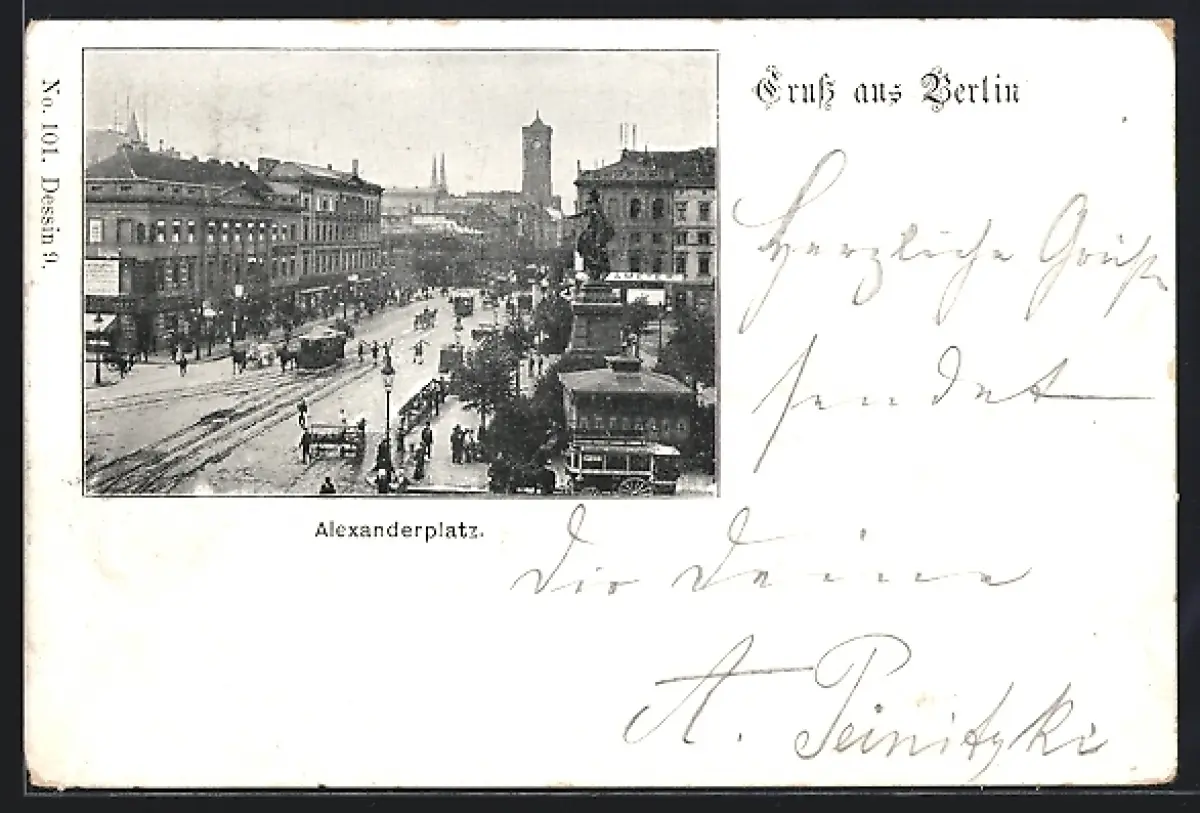 No. 101. Dessin 9.
Gruß aus Berlin
Herzliche Grüße
sendet
Dir Deine
A.
Alexanderplatz.